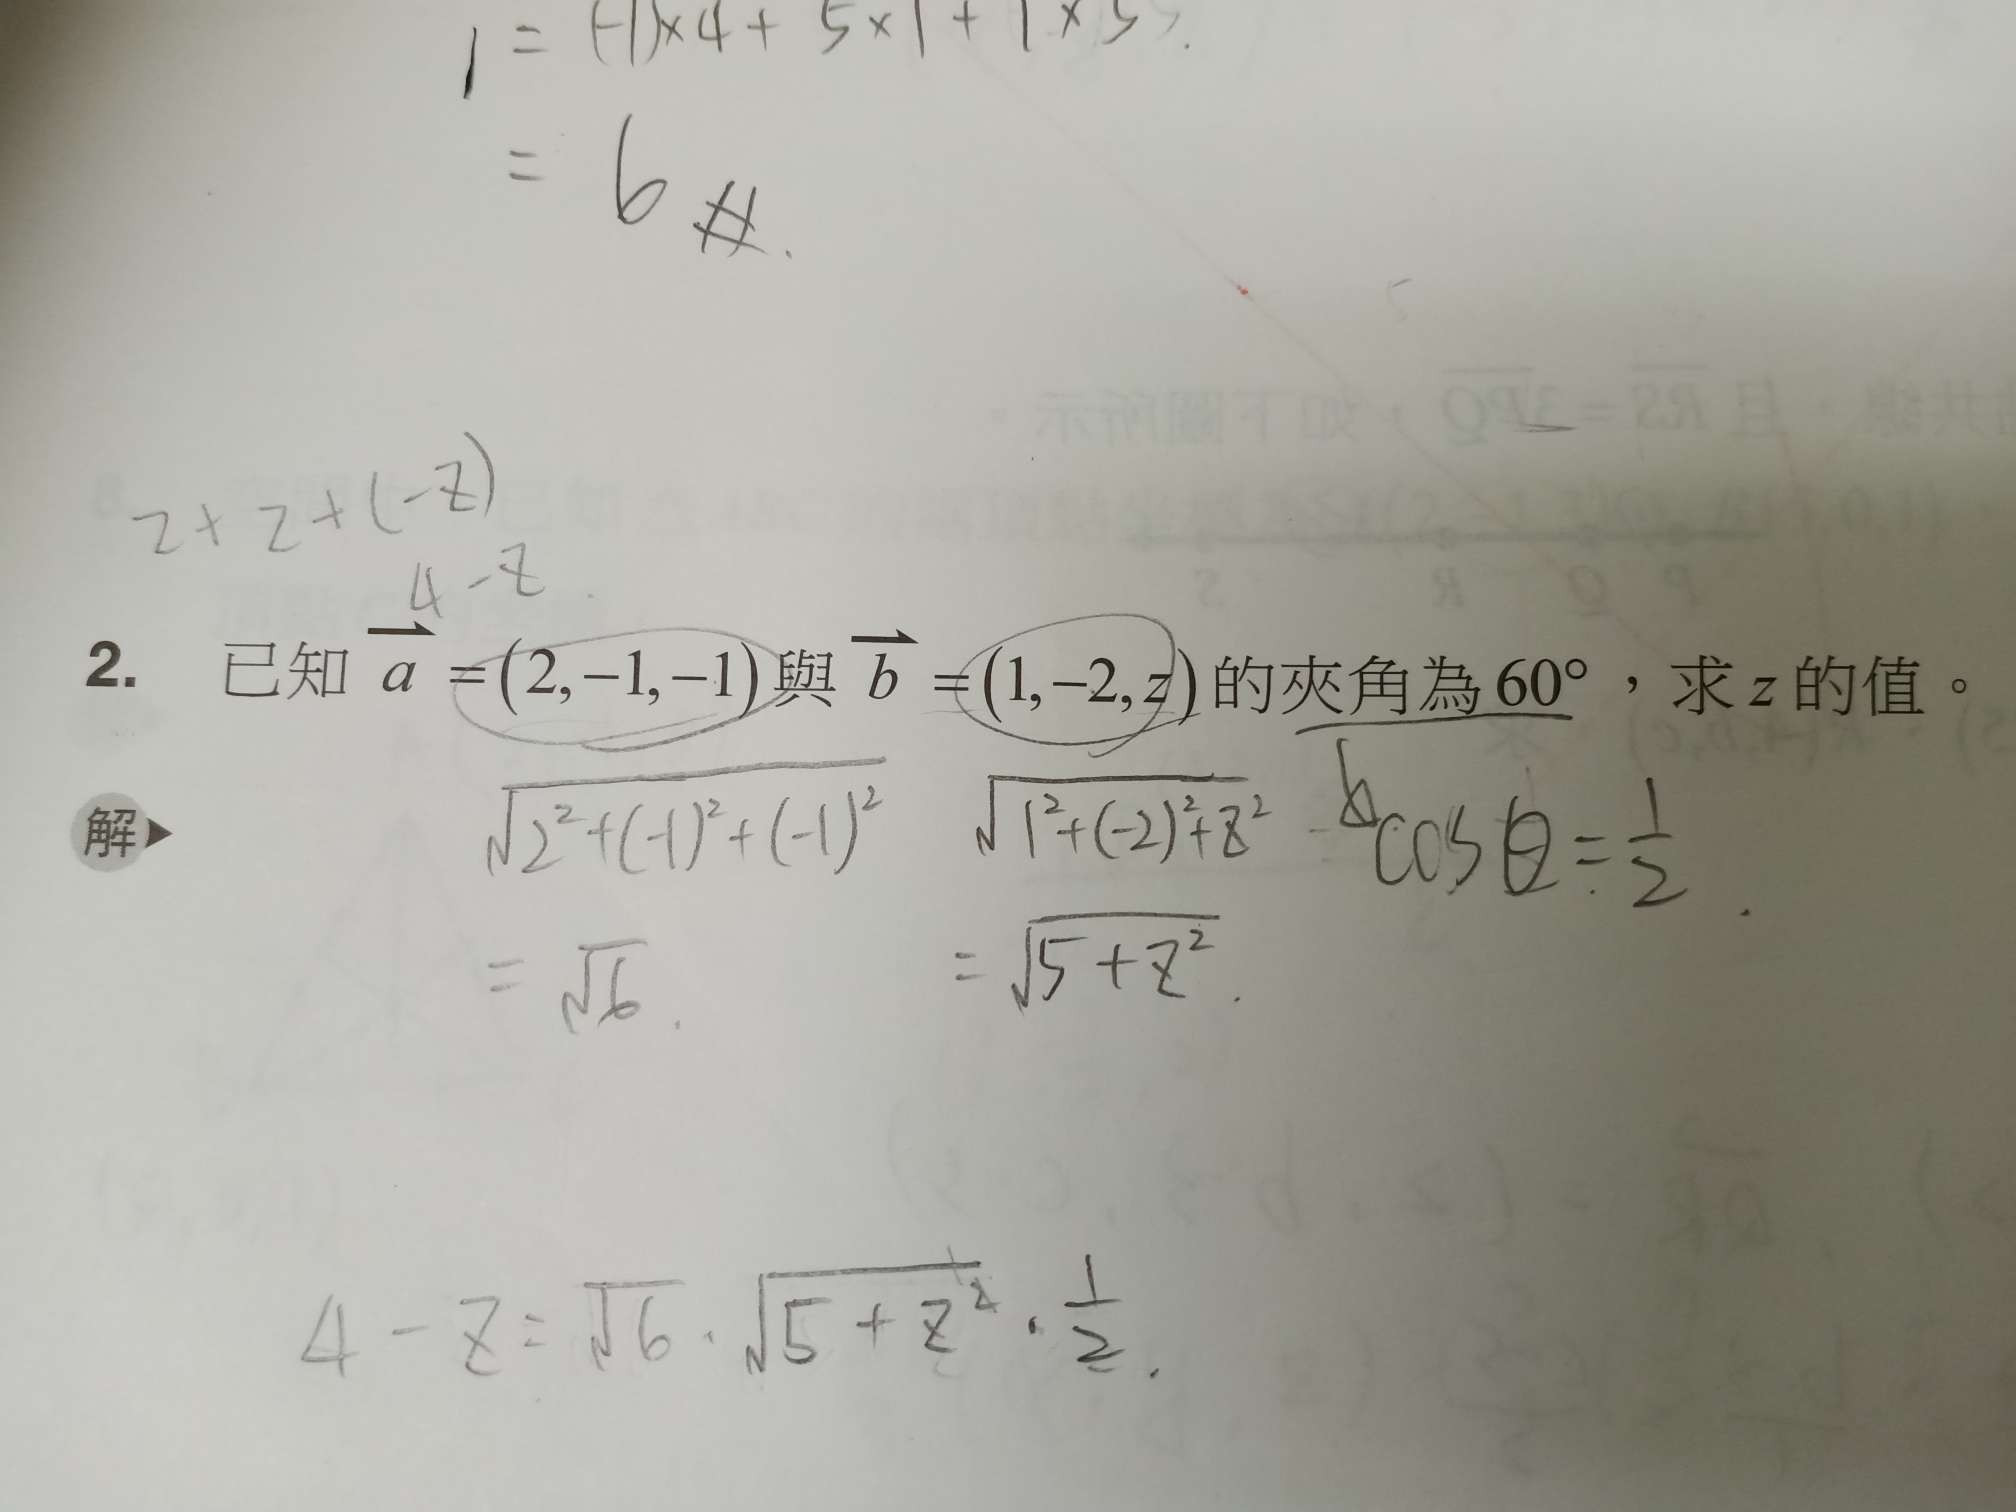 1 = (-1)×4 + 5×1 + 1×5
= 6 #.
2+2+(-z)
4-z
2. 已知 a =(2,−1,−1)與 b =(1,−2,z)的夾角為60°，求 z 的值。
解▶ √2²+(-1)²+(-1)² √1²+(-2)²+z² cosθ=1/2.
= √6. = √5+z².
4-z=√6·√5+z²·1/2.